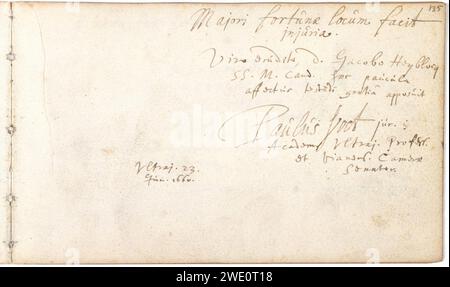 135
Majori fortunæ locum facit
injuria.
Viro erudito, d. Jacobo Heyblocq
SS. M. Cand. hæc paucula
affectus testandi gratiâ apposuit
Paulus Voet jur. i
Academ. Ultraj. Profess.
et Vianens. Cameræ
Senator.
Ultraj. 23.
Jun. 1660.
alamy
Image ID: 2WE0T18
www.alamy.com